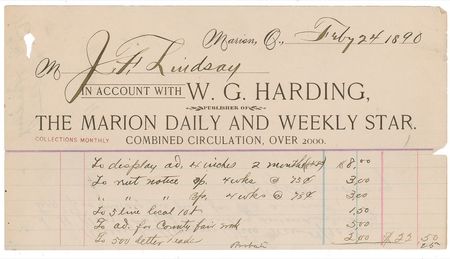 Marion, O., Feby 24 1890
M J. F. Lindsay
IN ACCOUNT WITH W. G. HARDING,
PUBLISHER OF
THE MARION DAILY AND WEEKLY STAR.
COLLECTIONS MONTHLY COMBINED CIRCULATION, OVER 2000.
To display ad. 4 inches 2 months 8.00
To net notice 4 wks @ 75¢ 3.00
" " " 4 wks @ 75¢ 3.00
To 5 line local 10t 1.50
To ad. for County fair 5.00
To 500 letter heads 2.00 $ 23 50